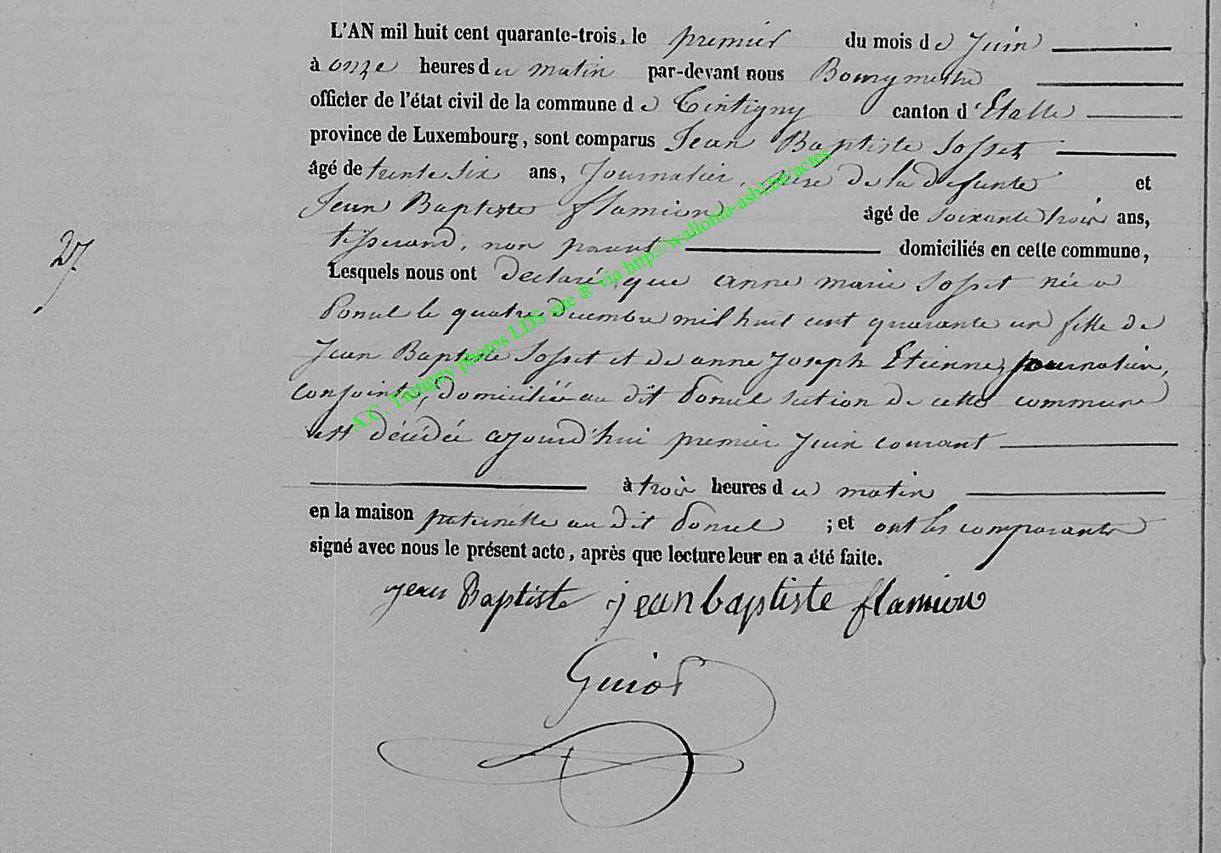 L'AN mil huit cent quarante-trois, le premier du mois de Juin
à onze heures du matin par-devant nous Bourgmestre
officier de l'état civil de la commune de Tintigny canton d'Etalle
province de Luxembourg, sont comparus Jean Baptiste Sosset
âgé de trente six ans, Journalier, père de la défunte et
Jean Baptiste flamion âgé de soixante trois ans,
tisserand, non parent domiciliés en cette commune,
27
Lesquels nous ont déclaré que anne marie Sosset née a
le quatre décembre mil huit cent quarante un fille de
Jean Baptiste Sosset et de anne Joseph Etienne, journalier,
conjoints, domiciliée au dit section de cette commune
est décédée aujourd'hui premier Juin courant
à trois heures du matin
en la maison paternelle au dit ; et ont les comparants
signé avec nous le présent acte, après que lecture leur en a été faite.
jean Baptiste jean baptiste flamion
A.C. Tintigny photos LDS site ® via http://wallonia-asbl.be/actes